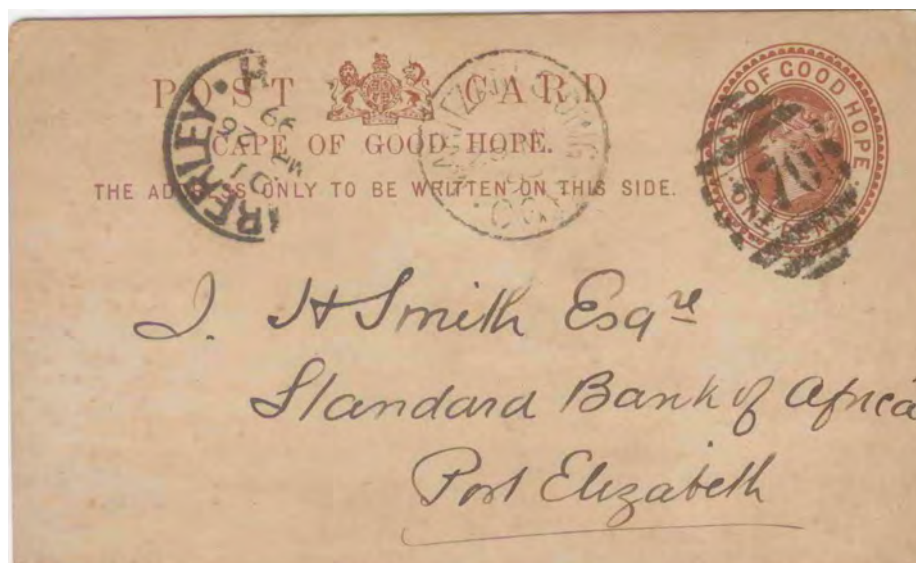 POST CARD
CAPE OF GOOD HOPE.
THE ADDRESS ONLY TO BE WRITTEN ON THIS SIDE.
CAPE OF GOOD HOPE
ONE PENNY.
J. H Smith Esqre
Standard Bank of Africa
Port Elizabeth